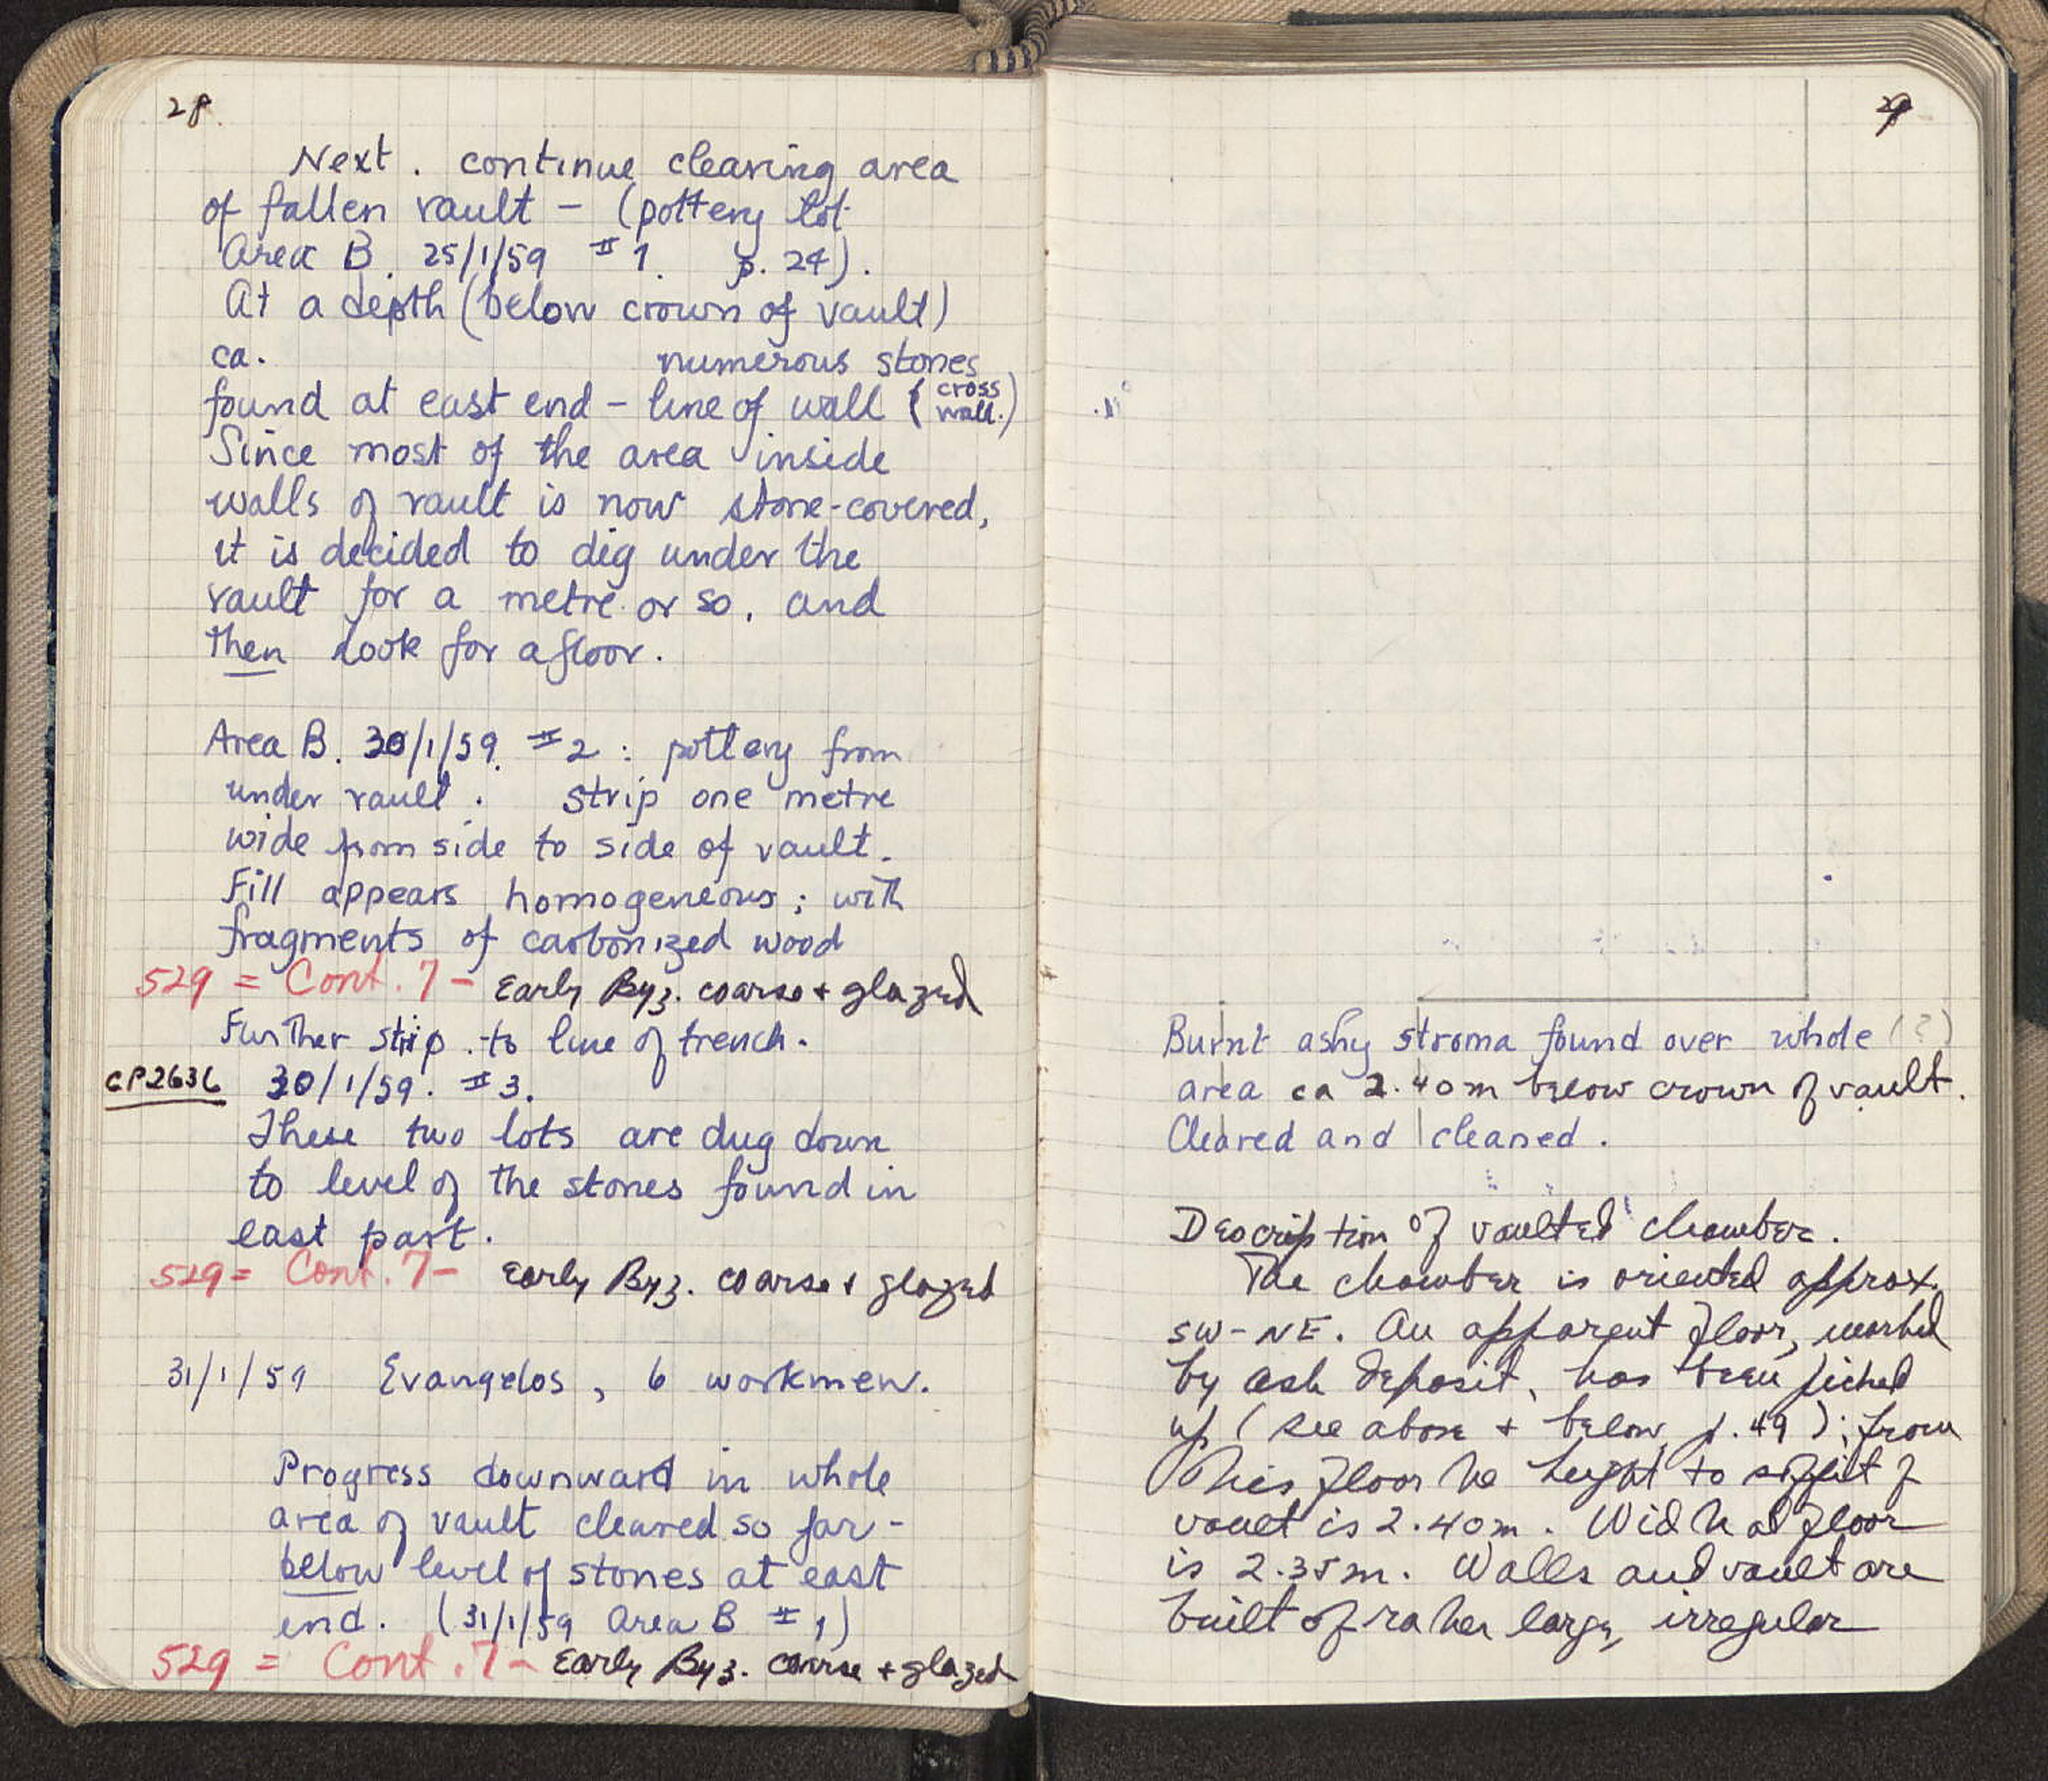 28.
Next. continue clearing area
of fallen vault - (pottery lot
Area B. 25/1/59 #1. p. 24).
At a depth (below crown of vault)
ca. numerous stones
found at east end - line of wall (cross wall.)
Since most of the area inside
walls of vault is now stone-covered,
it is decided to dig under the
vault for a metre or so, and
then look for a floor.
Area B. 30/1/59. #2 : pottery from
under vault. strip one metre
wide from side to side of vault.
Fill appears homogeneous; with
fragments of carbonized wood
529 = Cont. 7 - Early Byz. coarse + glazed
Further strip. to line of trench.
CP2636 30/1/59. #3.
These two lots are dug down
to level of the stones found in
east part.
529 = Cont. 7 - Early Byz. coarse + glazed
31/1/59 Evangelos, 6 workmen.
Progress downward in whole
area of vault cleared so far -
below level of stones at east
end. (31/1/59 Area B #1)
529 = Cont. 7 - Early Byz. coarse + glazed
29
Burnt ashy stroma found over whole (?)
area ca 2.40m below crown of vault.
Cleared and cleaned.
Description of vaulted chamber.
The chamber is oriented approx.
SW-NE. An apparent floor, marked
by ash deposit, has been picked
up (see above + below p. 49); from
this floor the height to soffit of
vault is 2.40m. Width at floor
is 2.35m. Walls and vault are
built of rather large, irregular